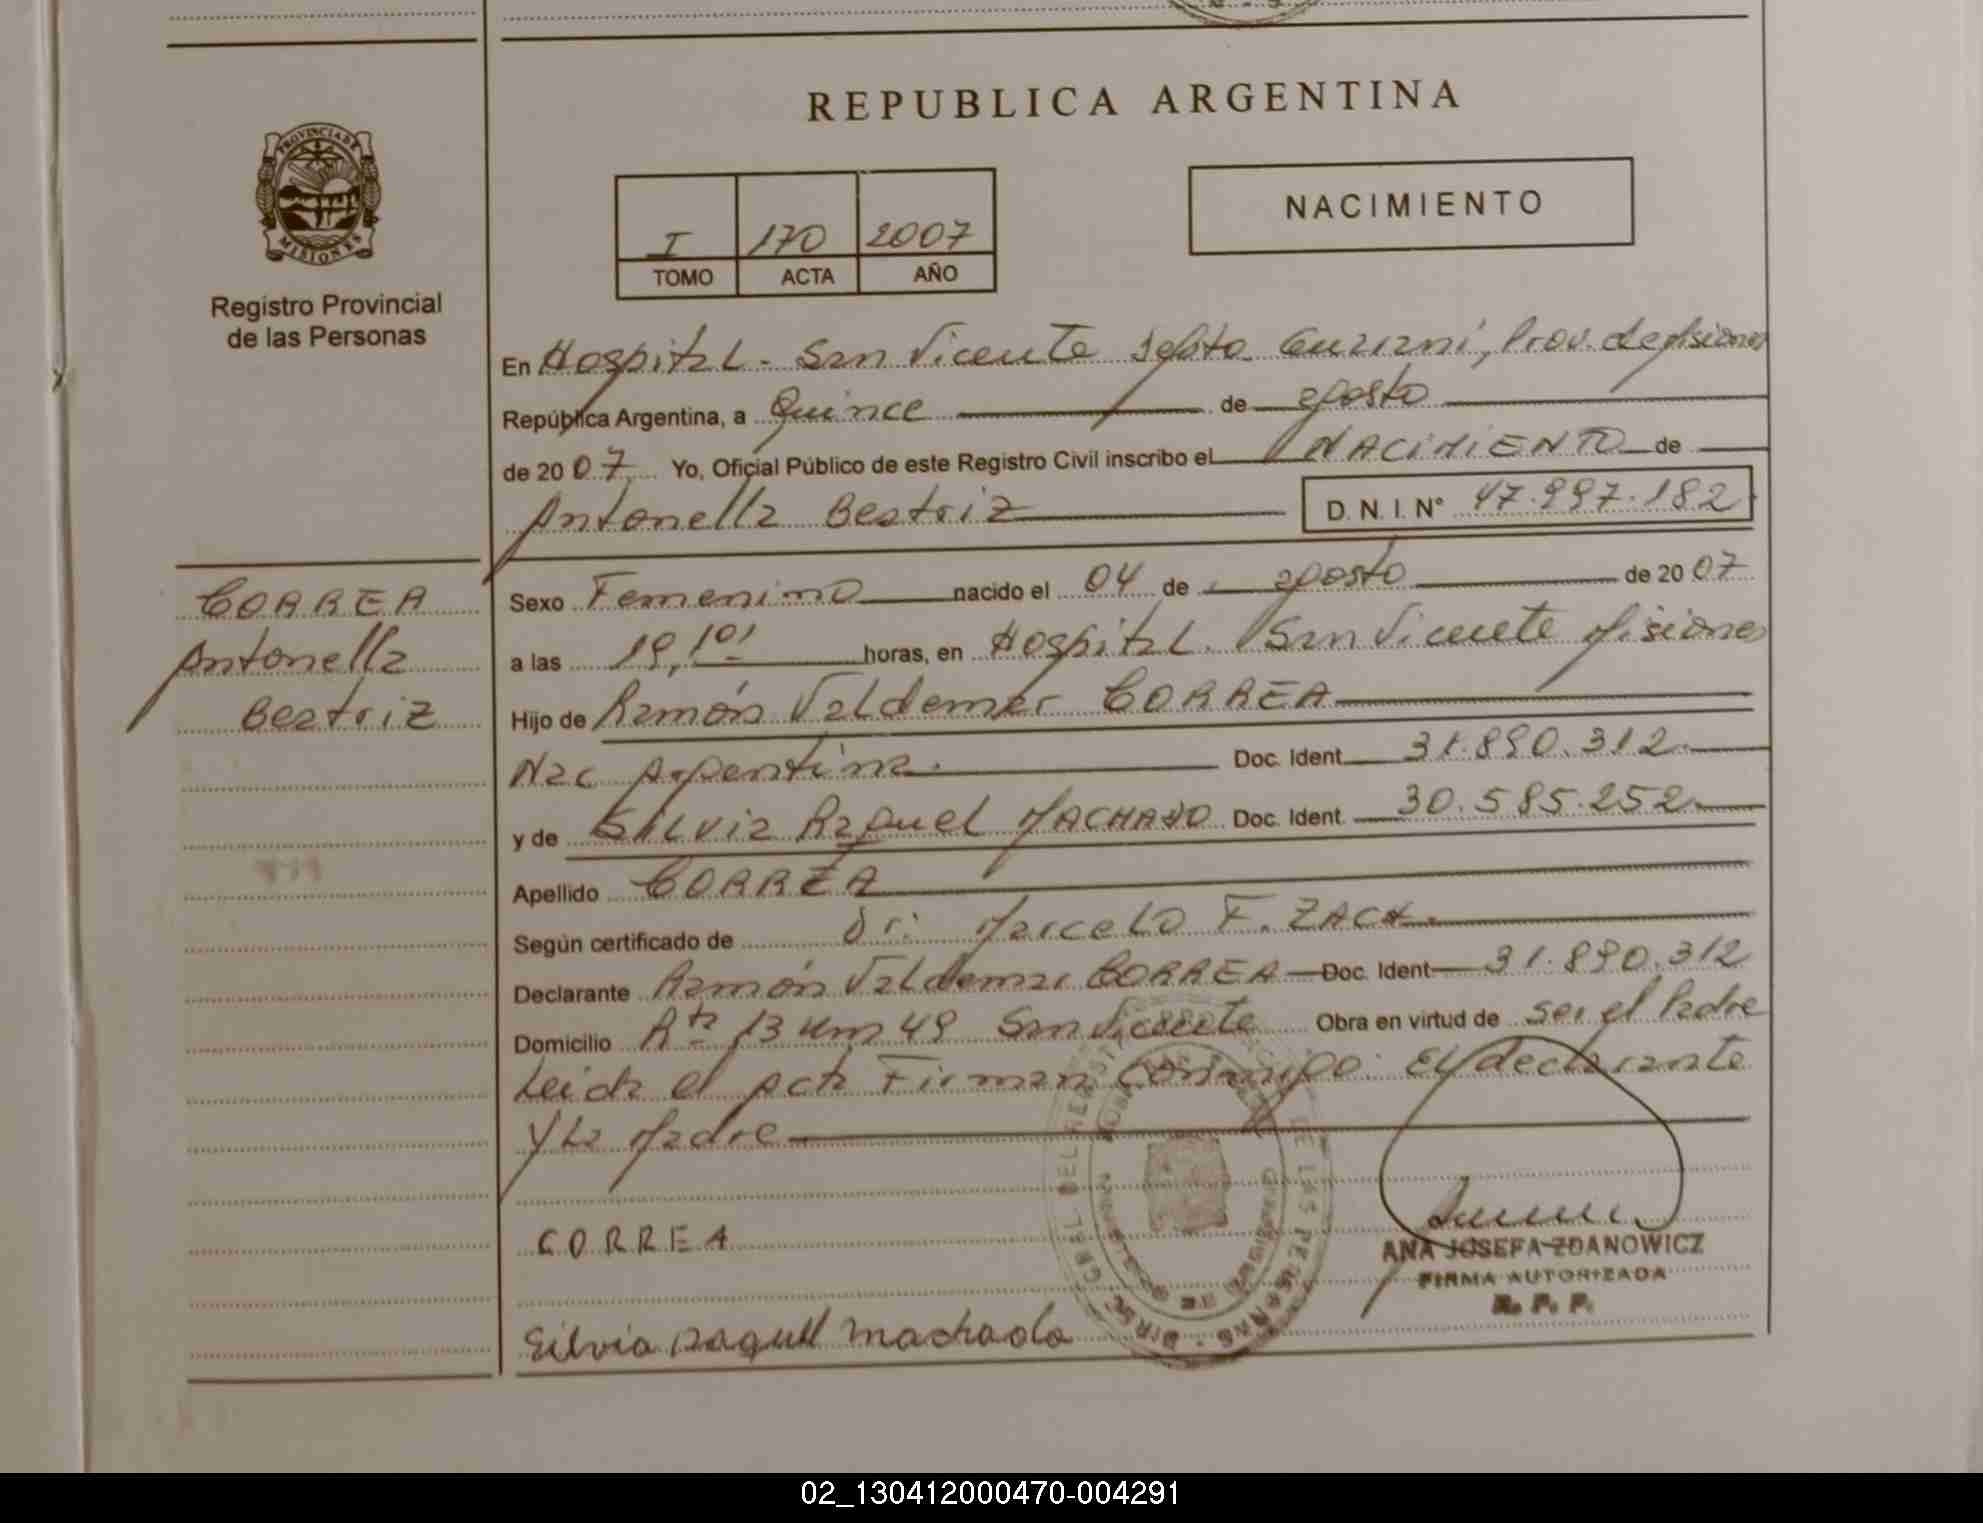 REPUBLICA ARGENTINA
PROVINCIA DE
MISIONES
Registro Provincial
de las Personas
I 170 2007
TOMO ACTA AÑO
NACIMIENTO
En Hospital - San Vicente Dpto Guaraní, Prov. de Misiones
República Argentina, a Quince de agosto
de 2007 Yo, Oficial Público de este Registro Civil inscribo el NACIMIENTO de
Antonella Beatriz D. N. I. N° 47.997.182
CORREA
Antonella
Beatriz
Sexo Femenino nacido el 04 de agosto de 2007
a las 19,10' horas, en Hospital San Vicente Misiones
Hijo de Ramón Valdemar CORREA
Nac Argentina. Doc. Ident. 31.890.312
y de Silvia Raquel MACHADO Doc. Ident. 30.585.252
Apellido CORREA
Según certificado de Dr: Marcelo F. ZACH
Declarante Ramón Valdemar CORREA Doc. Ident 31.890.312
Domicilio Rta 13 Km 49 San Vicente Obra en virtud de ser el Padre
Leida el acta Firman conmigo: El declarante
y La Madre
CORREA
ANA JOSEFA ZDANOWICZ
FIRMA AUTORIZADA
R. P. P.
Silvia Raquel Machado
02_130412000470-004291